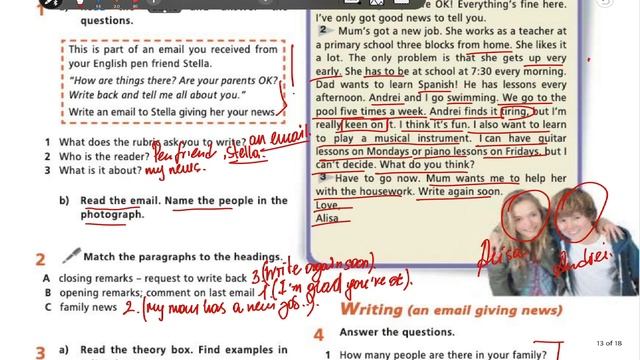 1
questions.
This is part of an email you received from
your English pen friend Stella.
"How are things there? Are your parents OK?
Write back and tell me all about you."
Write an email to Stella giving her your news.
1 What does the rubric ask you to write? an email.
2 Who is the reader? Pen friend, Stella.
3 What is it about? my news.
b) Read the email. Name the people in the
photograph.
2 Match the paragraphs to the headings.
A closing remarks – request to write back 3 (Write again soon).
B opening remarks; comment on last email 1 (I'm glad you're ok).
C family news 2. (my mom has a new job...).
3 a) Read the theory box. Find examples in
are OK! Everything's fine here.
I've only got good news to tell you.
2 Mum's got a new job. She works as a teacher at
a primary school three blocks from home. She likes it
a lot. The only problem is that she gets up very
early. She has to be at school at 7:30 every morning.
Dad wants to learn Spanish! He has lessons every
afternoon. Andrei and I go swimming. We go to the
pool five times a week. Andrei finds it tiring, but I'm
really keen on it. I think it's fun. I also want to learn
to play a musical instrument. I can have guitar
lessons on Mondays or piano lessons on Fridays, but I
can't decide. What do you think?
3 Have to go now. Mum wants me to help her
with the housework. Write again soon.
Love,
Alisa
Alisa Andrei.
Writing (an email giving news)
4 Answer the questions.
1 How many people are there in your family?
13 of 18